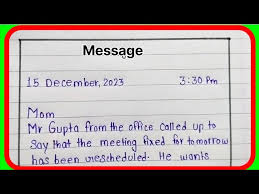 Message
15 December, 2023 3:30 Pm
Mom
Mr Gupta from the office called up to
say that the meeting fixed for tomorrow
has been rescheduled. He wants